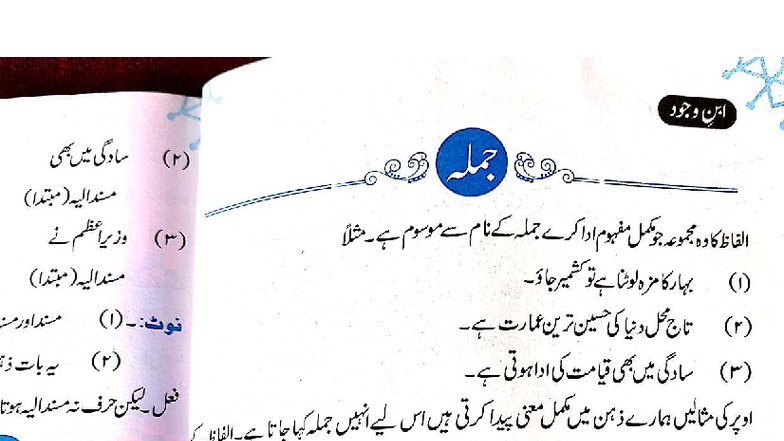 ابنِ وجود
جملہ
الفاظ کا وہ مجموعہ جو مکمل مفہوم ادا کرے جملہ کے نام سے موسوم ہے۔ مثلاً
(۱) بہار کا مزہ لوٹنا ہے تو کشمیر جاؤ۔
(۲) تاج محل دنیا کی حسین ترین عمارت ہے۔
(۳) سادگی میں بھی قیامت کی ادا ہوتی ہے۔
اوپر کی مثالیں ہمارے ذہن میں مکمل معنی پیدا کرتی ہیں اس لیے انہیں جملہ کہا جاتا ہے۔ الفاظ کے
(۲) سادگی میں بھی
مسند الیہ (مبتدا)
(۳) وزیراعظم نے
مسند الیہ (مبتدا)
نوٹ:۔ (۱) مسند اور
(۲) یہ بات
فعل۔ لیکن حرف نہ مسند الیہ ہوتا